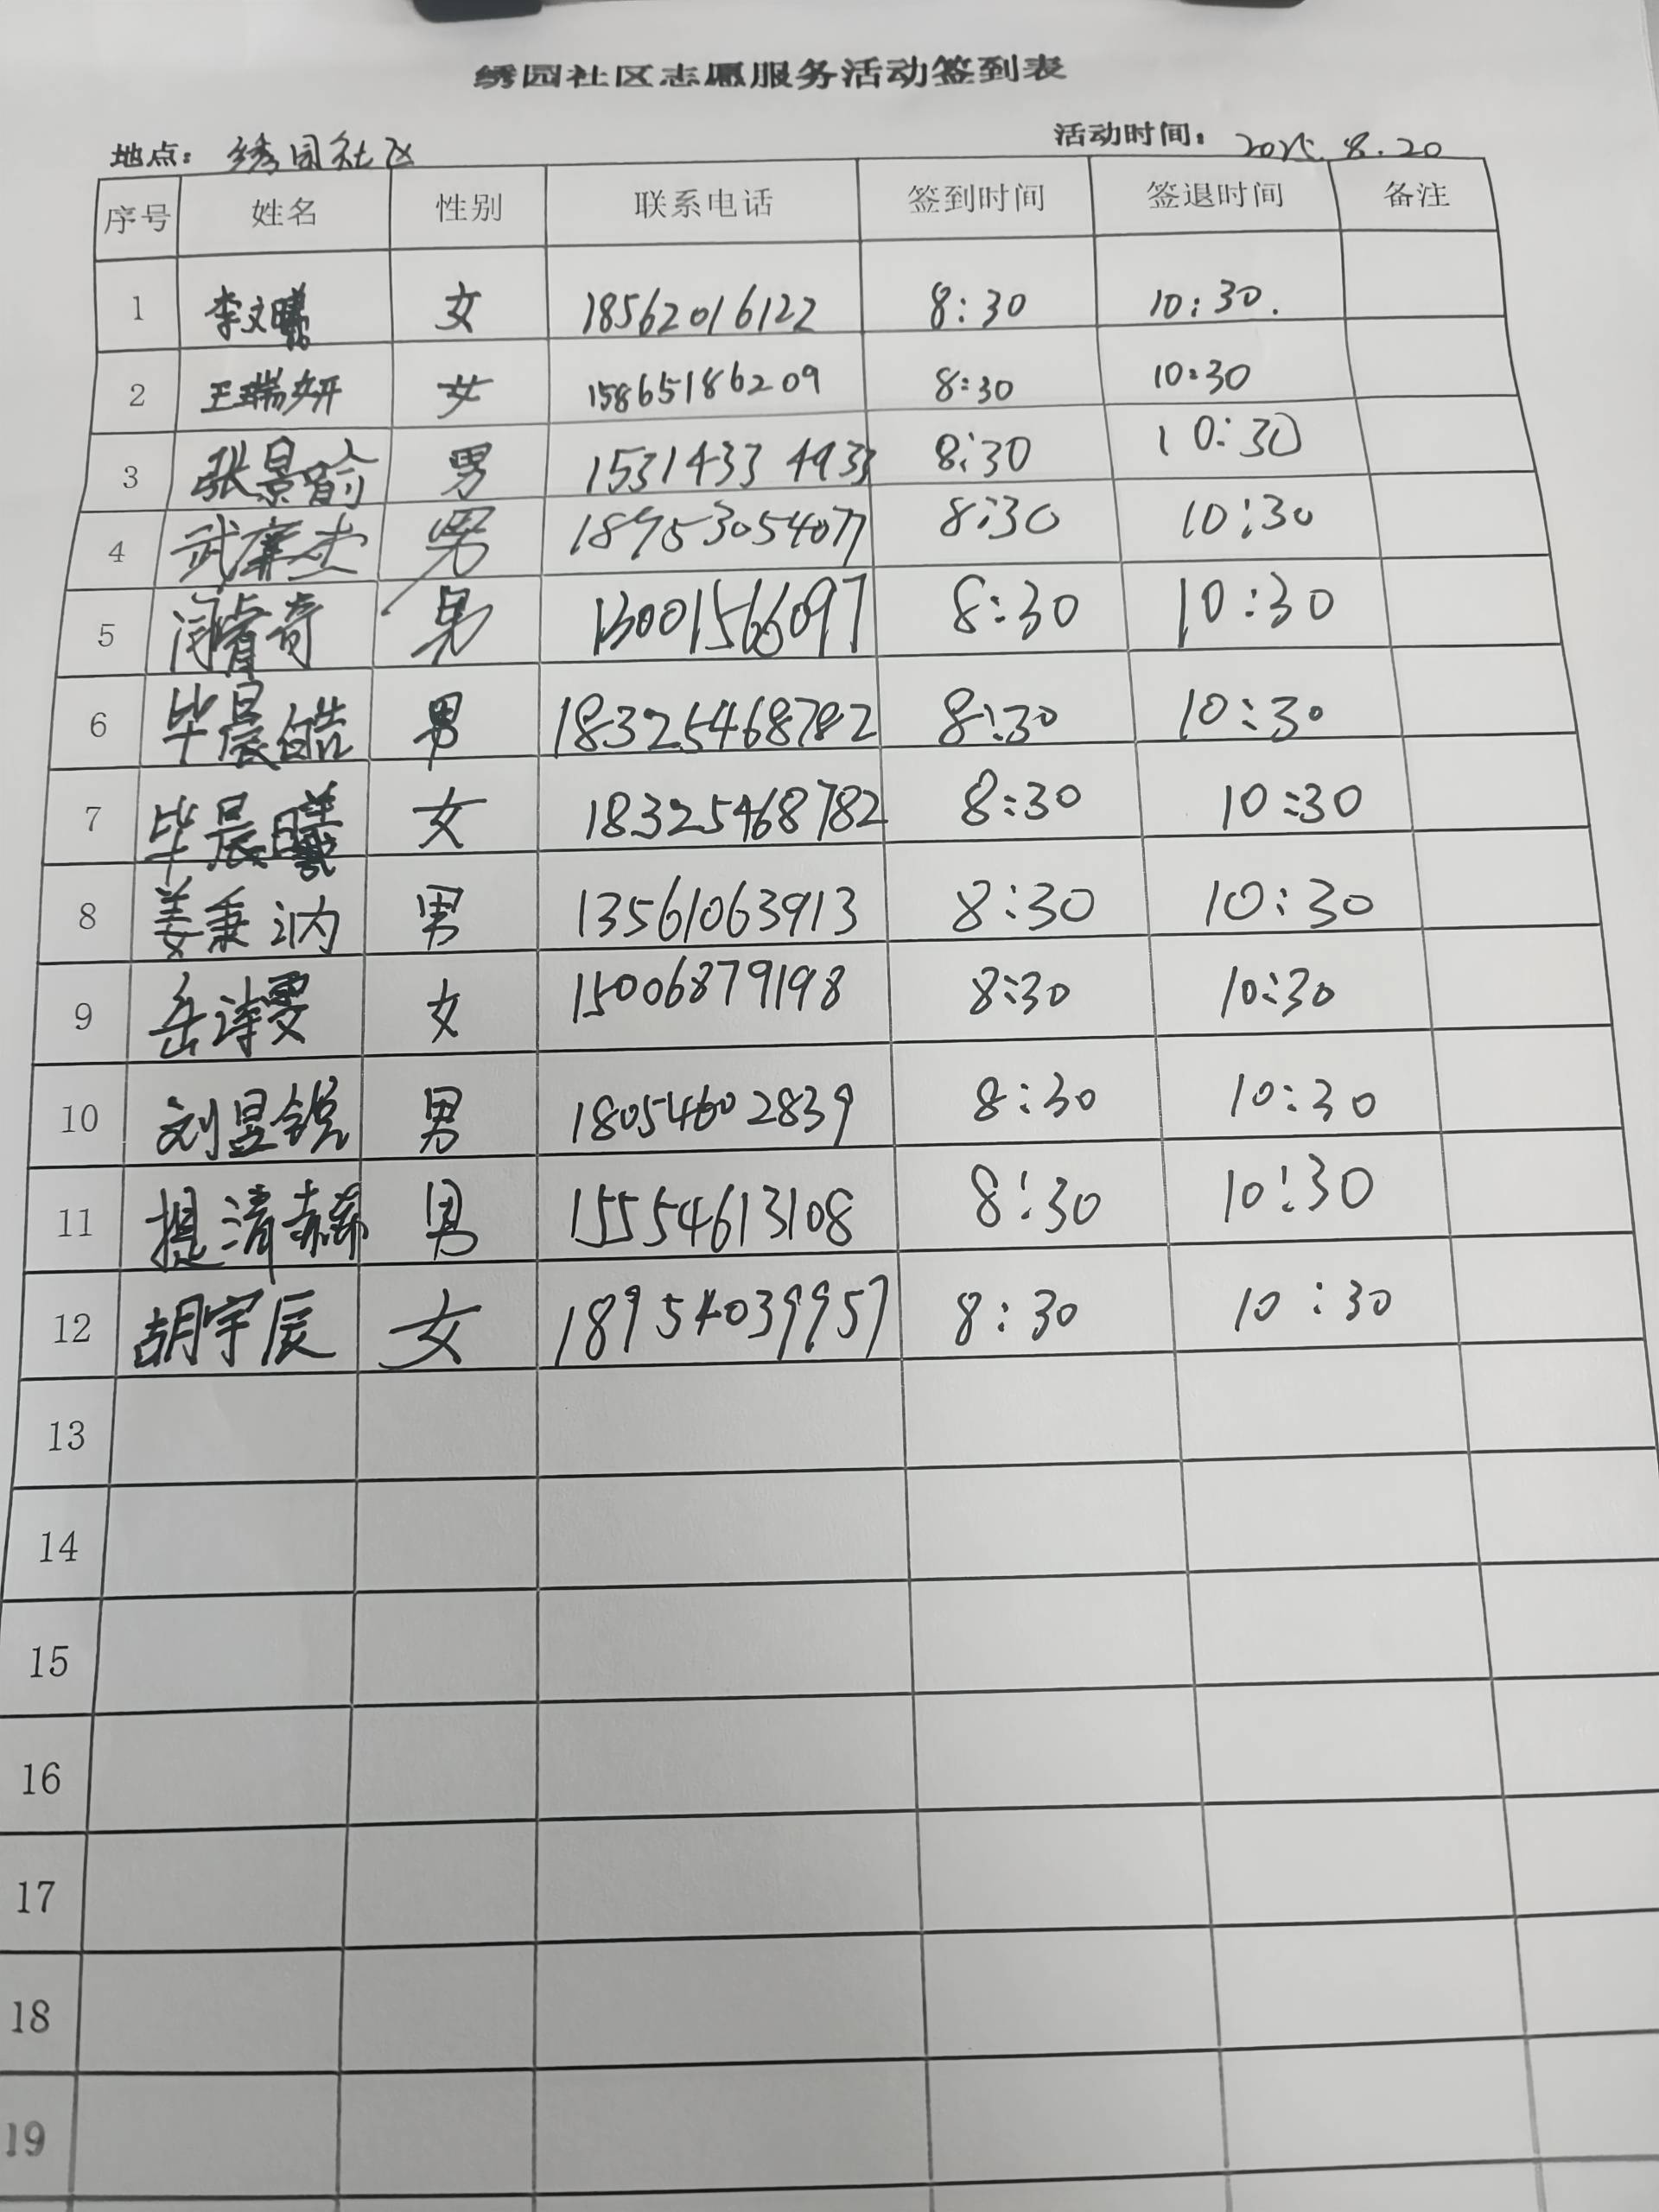 绣园社区志愿服务活动签到表
地点：绣园社区 活动时间：2025.8.20
序号 姓名 性别 联系电话 签到时间 签退时间 备注
1 李文曦 女 18562016122 8:30 10:30.
2 王瑞妍 女 15865186209 8:30 10:30
3 张景瑜 男 15314334933 8:30 10:30
4 武 男 18953054077 8:30 10:30
5 闫睿奇 男 13001566097 8:30 10:30
6 毕晨皓 男 18325468782 8:30 10:30
7 毕晨曦 女 18325468782 8:30 10:30
8 姜秉汭 男 13561063913 8:30 10:30
9 岳诗雯 女 15006879198 8:30 10:30
10 刘昱锐 男 18054602839 8:30 10:30
11 提清赫 男 15554613108 8:30 10:30
12 胡宇辰 女 18954039957 8:30 10:30
13
14
15
16
17
18
19